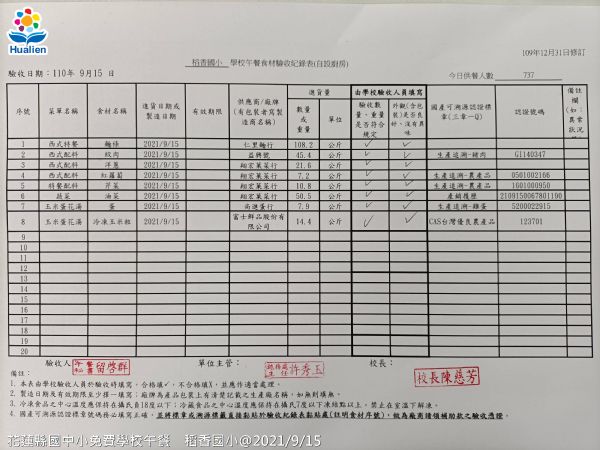 Hualien
109年12月31日修訂
稻香國小 學校午餐食材驗收紀錄表(自設廚房)
驗收日期：110年 9月15 日
今日供餐人數 737
進貨量 由學校驗收人員填寫
序號 菜單名稱 食材名稱 進貨日期或製造日期 有效期限 供應商/廠牌(有包裝者寫製造商名稱) 數量或重量 單位 驗收數量、重量是否符合規定 外觀(含包裝)是否良好、沒有異味 國產可溯源認證標章(三章一Q) 認證號碼 備註欄(如：異常狀況
1 西式特餐 麵條 2021/9/15 仁里麵行 108.2 公斤 ✓ ✓
2 西式配料 絞肉 2021/9/15 益興號 45.4 公斤 ✓ ✓ 生產追溯-豬肉 G1140347
3 西式配料 洋蔥 2021/9/15 翔宏菓菜行 21.6 公斤 ✓ ✓
4 西式配料 紅蘿蔔 2021/9/15 翔宏菓菜行 7.2 公斤 ✓ ✓ 生產追溯-農產品 0501002166
5 特餐配料 芹菜 2021/9/15 翔宏菓菜行 10.8 公斤 ✓ ✓ 生產追溯-農產品 1601000950
6 蔬菜 油菜 2021/9/15 翔宏菓菜行 50.5 公斤 ✓ ✓ 產銷履歷 2109150067801190
7 玉米蛋花湯 蛋 2021/9/15 尚進蛋行 7.9 公斤 ✓ ✓ 生產追溯-雞蛋 5200022915
8 玉米蛋花湯 冷凍玉米粒 2021/9/15 富士鮮品股份有限公司 14.4 公斤 ✓ ✓ CAS台灣優良農產品 123701
9
10
11
12
13
14
15
16
17
18
19
20
驗收人 留啓群 單位主管： 許秀玉 校長： 校長陳慈芳
備註：
1. 本表由學校驗收人員於驗收時填寫，合格填✓，不合格填X，並應作適當處理。
2. 製造日期及有效期限至少擇一填寫；廠牌為產品包裝上有清楚記載之生產廠名稱，如無則填無。
3. 冷凍食品之中心溫度應保持在攝氏負18度以下；冷藏食品之中心溫度應保持在攝氏7度以下凍結點以上，禁止在室溫下解凍。
4. 國產可溯源認證標章號碼務必填寫正確，並將標章或溯源標籤直接黏貼於驗收紀錄表黏貼處(註明食材序號)，做為廠商請領補助款之驗收憑證。
花蓮縣國中小免費學校午餐 稻香國小@2021/9/15